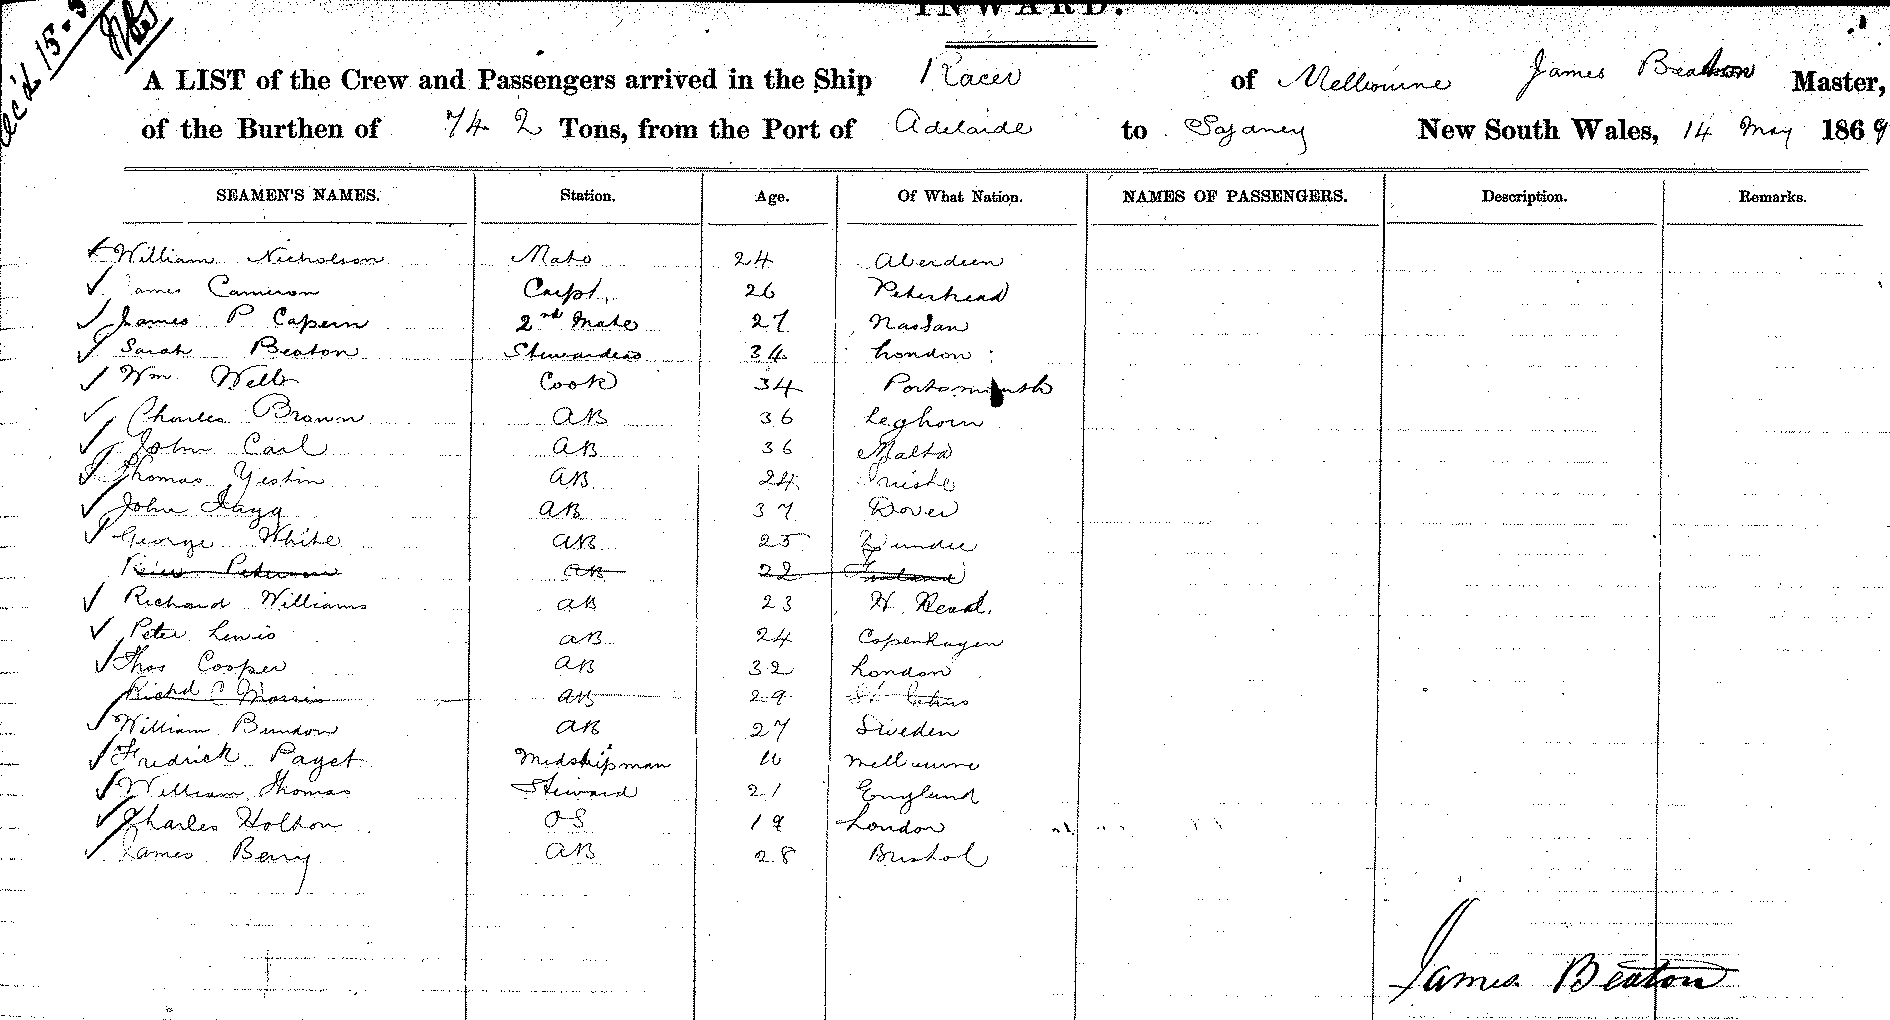 INWARD.
A LIST of the Crew and Passengers arrived in the Ship Racer of Melbourne James Beaton Master,
of the Burthen of 742 Tons, from the Port of Adelaide to Sydney New South Wales, 14 May 1869
SEAMEN'S NAMES. Station. Age. Of What Nation. NAMES OF PASSENGERS. Description. Remarks.
William Nicholson Mate 24 Aberdeen
James Cameron Carpt. 26 Peterhead
James P Capern 2nd Mate 27 Nassau
Sarah Beaton Stewardess 34 London
Wm. Webb Cook 34 Portsmouth
Charles Brown AB 36 Leghorn
John Carl AB 36 Malta
Thomas Yestin AB 24
John AB 37 Dover
George White AB 25 Dundee
Peterson AB 22 Finland
Richard Williams AB 23 H. Head.
Peter Lewis AB 24 Copenhagen
Thos Cooper AB 32 London
Richd C Morris AB 29 St Johns
William Bundon AB 27 Sweden
Fredrick Paget Midshipman 16 Melbourne
William Thomas Steward 21 England
Charles Holton OS 19 London
James Berry AB 28 Bristol
James Beaton